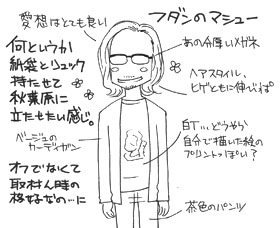 愛想はとても良い
フダンのマシュー
何というか
紙袋とリュック
持たせて
秋葉原に
立たせたい感じ。
あの分厚いメガネ
ヘアスタイル、
ヒゲともに伸びっぱ。
ベージュの
カーディガン
白T…どうやら
自分で描いた絵の
プリントっぽい?
オフでなくて
取材ん時の
格好なのに…
茶色のパンツ